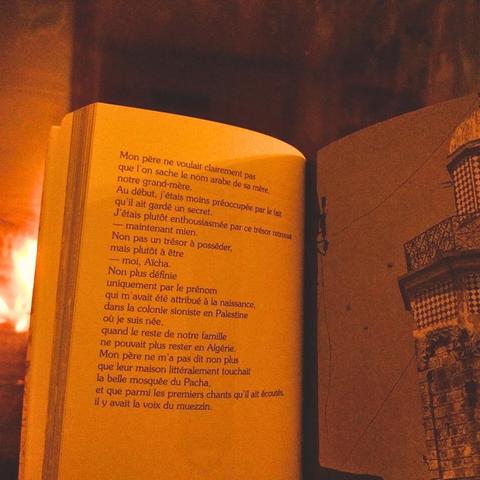 Mon père ne voulait clairement pas
que l'on sache le nom arabe de sa mère,
notre grand-mère.
Au début, j'étais moins préoccupée par le fait
qu'il ait gardé un secret.
J'étais plutôt enthousiasmée par ce trésor retrouvé
— maintenant mien.
Non pas un trésor à posséder,
mais plutôt à être
— moi, Aïcha.
Non plus définie
uniquement par le prénom
qui m'avait été attribué à la naissance,
dans la colonie sioniste en Palestine
où je suis née,
quand le reste de notre famille
ne pouvait plus rester en Algérie.
Mon père ne m'a pas dit non plus
que leur maison littéralement touchait
la belle mosquée du Pacha,
et que parmi les premiers chants qu'il ait écoutés,
il y avait la voix du muezzin.